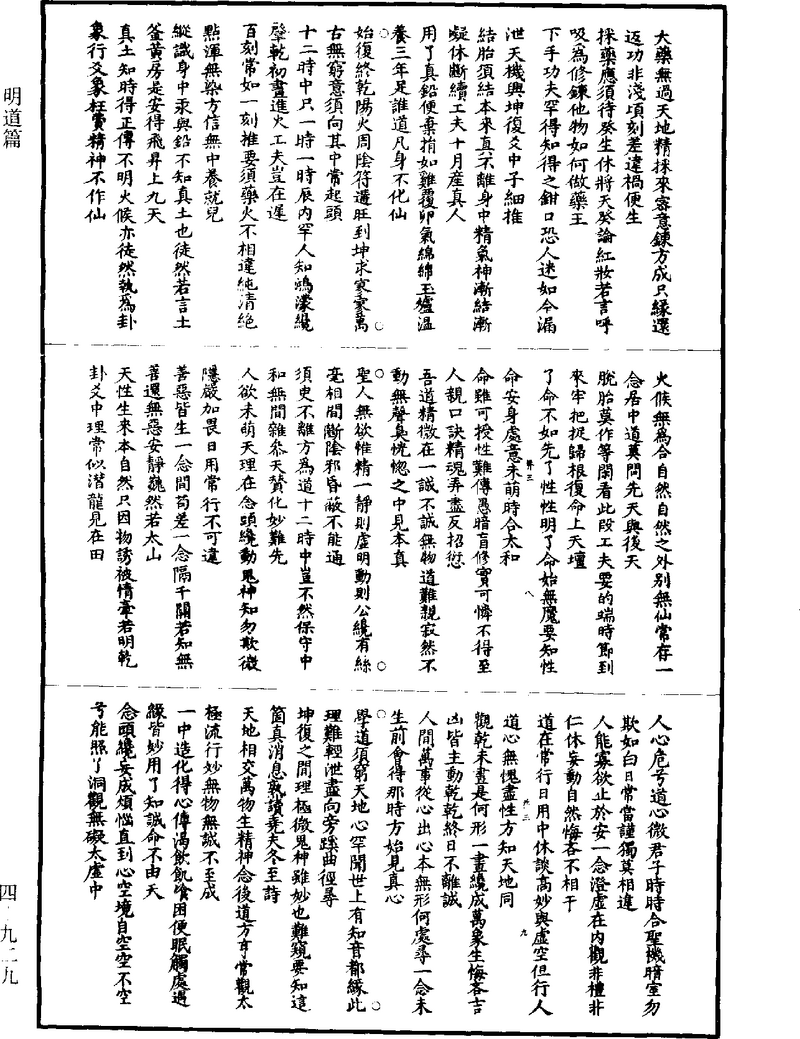 大藥無過天地精採來密意鍊方成只緣還
返功非淺頃刻差違禍便生
採藥應須待癸生休將天癸論紅妝若言呼
吸為修鍊他物如何做藥王
下手功夫罕得知得之鉗口恐人迷如今漏
泄天機興坤復爻中子細推
結胎須結本來真六離身中精氣神漸結漸
凝休斷續工夫十月産真人
用了真鉛便棄捐如雞覆卵氣綿綿玉爐温
養三年足誰道凡身不化仙
○
始復終乾陽火周陰符遘旺到坤求寥寥萬
古無窮意須向其中常起頭
十二時中只一時一時辰內罕人知鴻濛纔
肇乾初畫進火工夫豈在遲
百刻常如一刻推要須藥火不相違純清絶
點渾無染方信無中養就兒
縱識身中汞與鉛不知真土也徒然若言土
釜黄房是安得飛昇上九天
真土知時得正傳不明火候亦徒然執爲卦
象行爻象枉費精神不作仙
火候無爲合自然自然之外别無仙常存一
念居中道莫問先天與後天
脱胎莫作等閑看此段工夫要的端時節到
來牢把捉歸根復命上天壇
了命不如先了性性明了命始無魔要知性
命安身處意未萌時合太和
命雖可授性難傳愚暗盲修實可憐不得至
人親口訣精魂弄盡反招愆
吾道精微在一誠不誠無物道難親寂然不
動無聲臭恍惚之中見本真
○
聖人無欲惟精一靜則虚明動則公纔有絲
毫相間斷陰邪昏蔽不能通
須史不離方爲道十二時中豈不然保守中
和無間雜叅天贊化妙難先
人欲未萌天理在念頭纔動鬼神知勿欺微
隱嚴加畏日用常行不可違
善惡皆生一念間苟差一念隔千關若知無
善還無惡安靜巍然若太山
天性生來本自然只因物誘被情牽若明乾
卦爻中理常似潛龍見在田
人心危兮道心微君子時時合聖機暗室勿
欺如白日常當謹獨莫相違
人能寡欲止於安一念澄虚在内觀非禮非
仁休妄動自然悔吝不相干
道在常行日用中休談高妙與虚空但行人
道心無愧盡性方知天地同
觀乾未畫是何形一畫纔成萬象生悔吝吉
凶皆主動乾乾終日不離誠
人間萬事從心出心本無形何處尋一念未
生前會得那時方始見真心
○
學道須窮天地心罕聞世上有知音都緣此
理難輕泄盡向旁蹊曲徑尋
坤復之間理極微鬼神雖妙也難窺要知這
箇真消息孰讀堯夫冬至詩
天地相交萬物生精神念後道方亨常觀太
極流行妙無物無誠不至成
一中造化得心傳渴飲飢飡困便眠觸處遇
緣皆妙用了知誠命不由天
念頭纔妄成煩惱直到心空境自空空不空
兮能照了洞觀無礙太虚中
明道篇
四·九二九